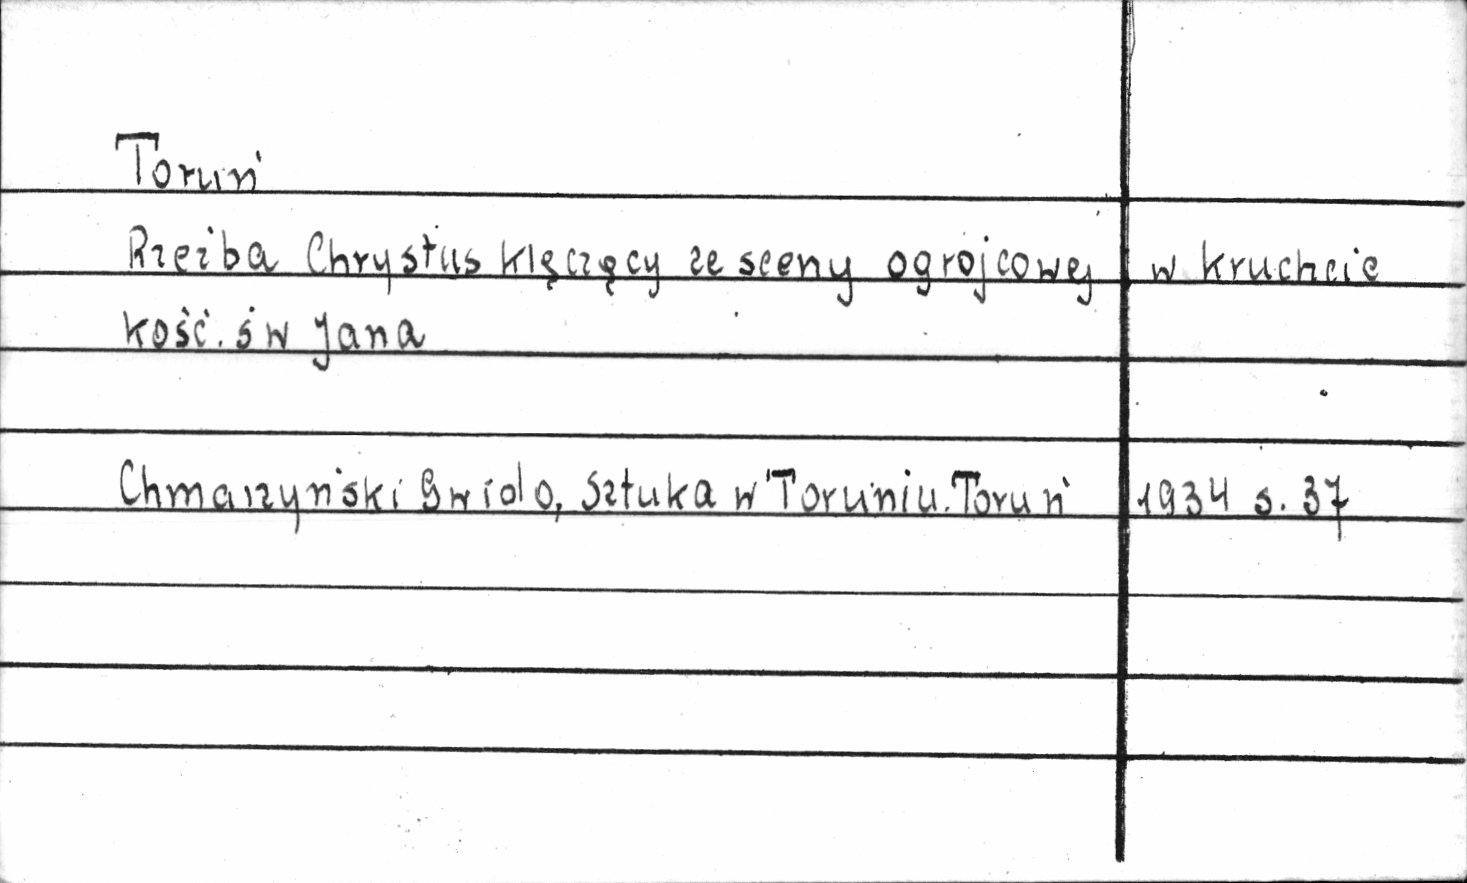 Toruń
Rzeźba Chrystus klęczący ze sceny ogrojcowej w kruchcie
kość. św Jana
Chmarzyński Gwido, Sztuka w Toruniu. Toruń 1934 s. 37